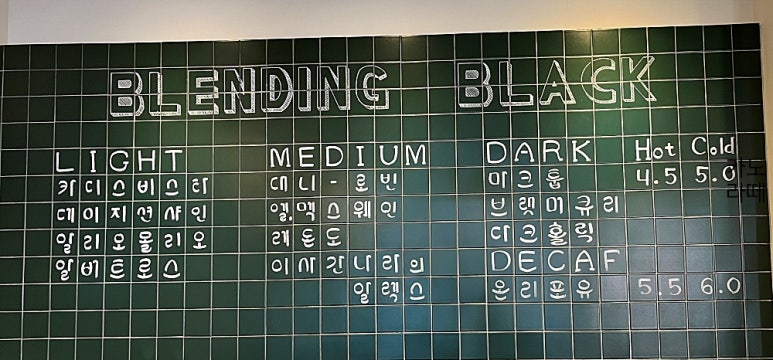 BLENDING BLACK
LIGHT
데이지션샤인
알리오올리오
알바트로스
MEDIUM
대니-로빈
엘.맥스웨인
레온도
이상한나라의
알렉스
DARK
마크툽
브랫머큐리
다크홀릭
DECAF
온리포유
Hot Cold
4.5 5.0
5.5 6.0
라떼